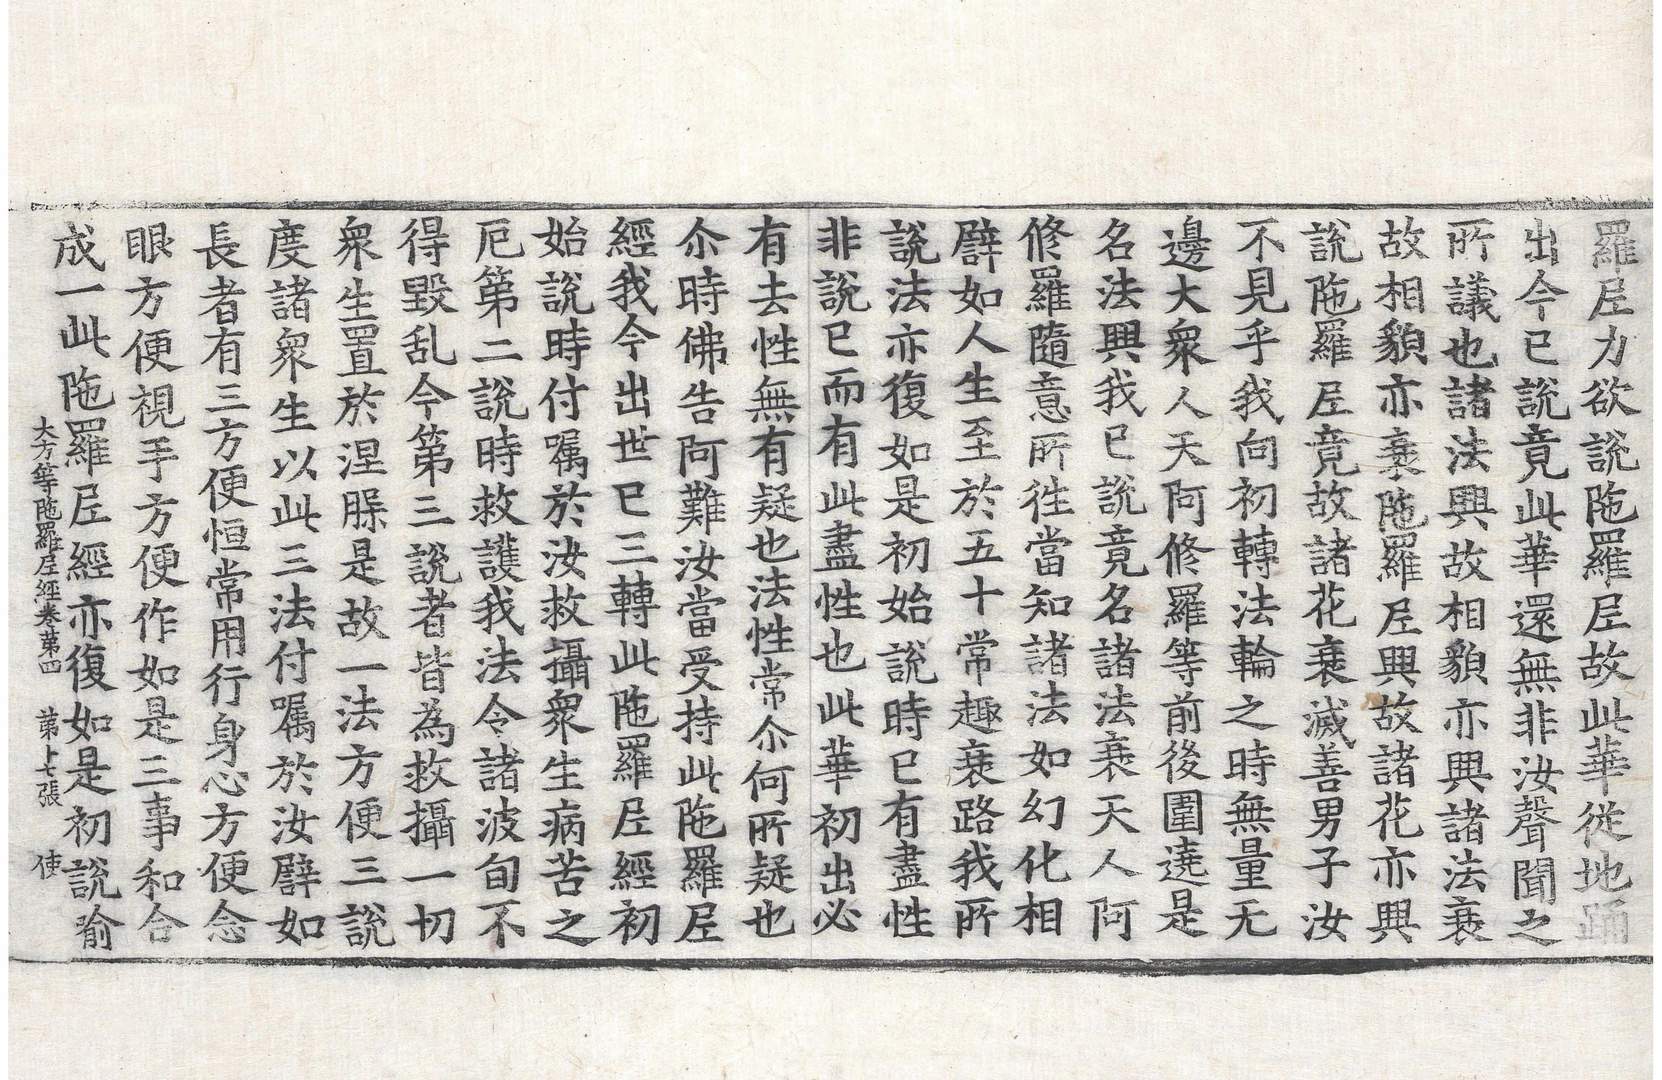 羅𡰱力欲說陁羅𡰱故此華従地踊
出今已說竟此華還無非汝聲聞之
所議也諸法興故相貌亦興諸法衰
故相貌亦衰陁羅𡰱興故諸花亦興
說陁羅𡰱竟故諸花衰滅善男子汝
不見乎我向初轉法輪之時無量无
邊大衆人天阿修羅等前後圍遶是
名法興我已說竟名諸法衰天人阿
修羅隨意所徃當知諸法如幻化相
譬如人生至於五十常趣衰路我所
說法亦復如是初始說時已有盡性
非說已而有此盡性也此華初出必
有去性無有疑也法性常尒何所疑也
尒時佛告阿難汝當受持此陁羅𡰱
經我今出世已三轉此陁羅𡰱經初
始說時付囑於汝救攝衆生病苦之
厄第二說時救護我法令諸波旬不
得毀乱今第三說者皆為救攝一切
衆生置於涅槃是故一法方便三說
度諸衆生以此三法付囑於汝譬如
長者有三方便恒常用行身心方便念
眼方便視手方便作如是三事和合
成一此陁羅𡰱經亦復如是初說喻
大方等陁羅𡰱經卷第四　第十七張　使